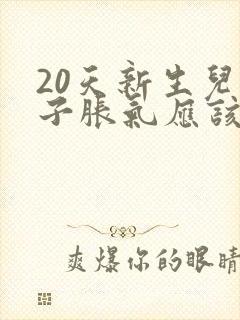 20天新生兒
子脹氣應該
爽爆你的眼睛